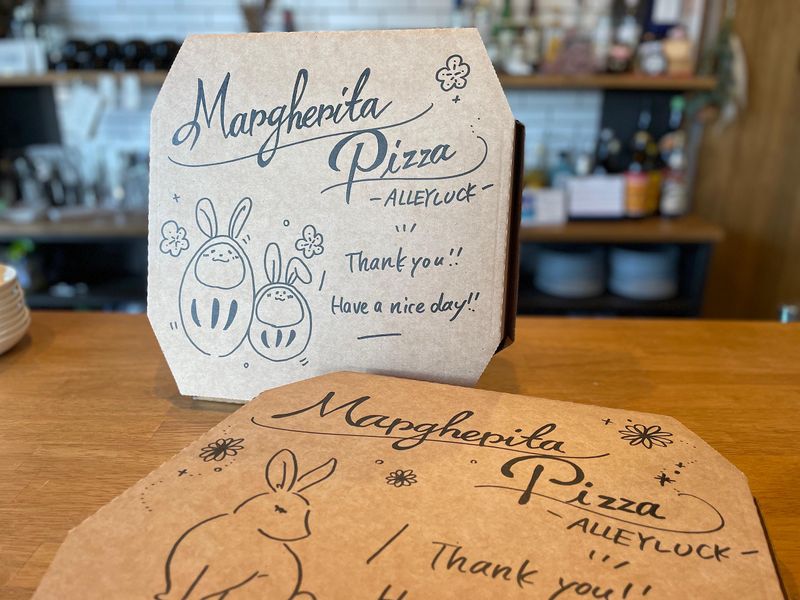 Margherita
Pizza
-ALLEYLUCK-
Thank you!!
Have a nice day!!
Margherita
Pizza
-ALLEYLUCK-
Thank you!!